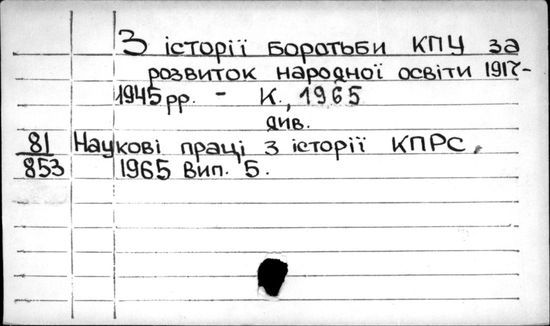 З історії боротьби КПУ за
розвиток народної освіти 1917-
1945 рр. - К., 1965
див.
81 Наукові праці з історії КПРС,
853 1965 Вип. 5.